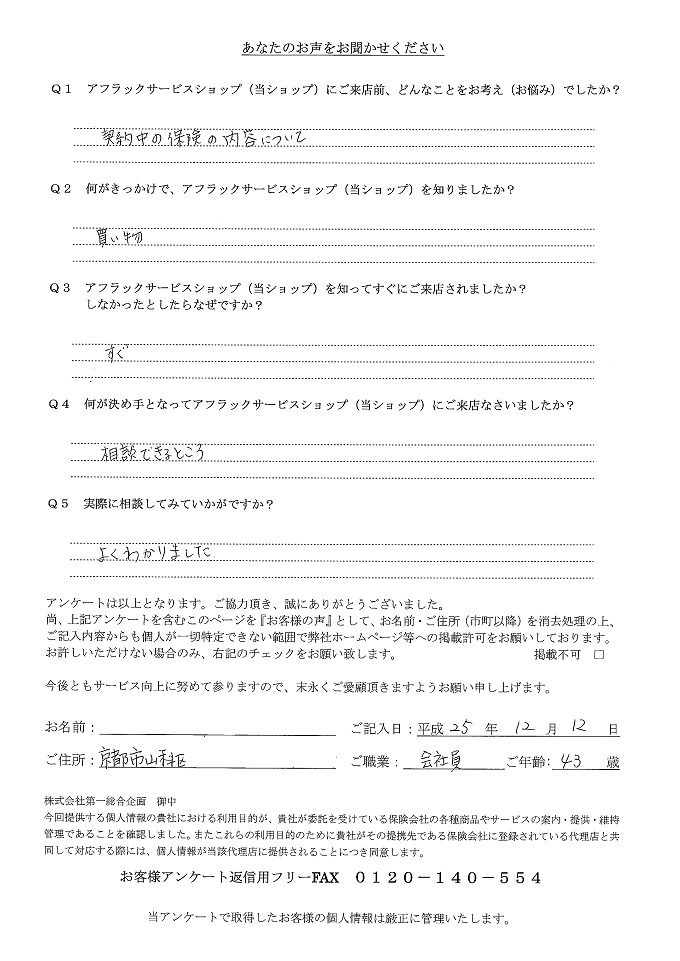 あなたのお声をお聞かせください
Q1 アフラックサービスショップ（当ショップ）にご来店前、どんなことをお考え（お悩み）でしたか？
契約中の保険の内容について
Q2 何がきっかけで、アフラックサービスショップ（当ショップ）を知りましたか？
買い物
Q3 アフラックサービスショップ（当ショップ）を知ってすぐにご来店されましたか？
しなかったとしたらなぜですか？
すぐ
Q4 何が決め手となってアフラックサービスショップ（当ショップ）にご来店なさいましたか？
相談できるところ
Q5 実際に相談してみていかがですか？
よくわかりました
アンケートは以上となります。ご協力頂き、誠にありがとうございました。
尚、上記アンケートを含むこのページを『お客様の声』として、お名前・ご住所（市町以降）を消去処理の上、
ご記入内容からも個人が一切特定できない範囲で弊社ホームページ等への掲載許可をお願いしております。
お許しいただけない場合のみ、右記のチェックをお願い致します。 掲載不可 □
今後ともサービス向上に努めて参りますので、末永くご愛顧頂きますようお願い申し上げます。
お名前： ご記入日：平成 25 年 12 月 12 日
ご住所：京都市山科区 ご職業： 会社員 ご年齢： 43 歳
株式会社第一総合企画 御中
今回提供する個人情報の貴社における利用目的が、貴社が委託を受けている保険会社の各種商品やサービスの案内・提供・維持
管理であることを確認しました。またこれらの利用目的のために貴社がその提携先である保険会社に登録されている代理店と共
同して対応する際には、個人情報が当該代理店に提供されることにつき同意します。
お客様アンケート返信用フリーFAX 0120－140－554
当アンケートで取得したお客様の個人情報は厳正に管理いたします。